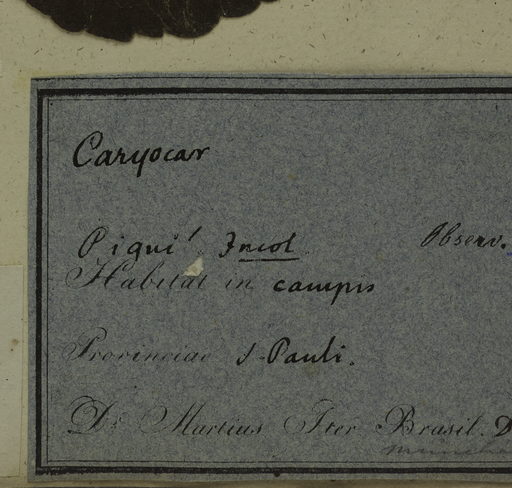 Caryocar
Piqui' Incol Observ.
Habitat in campis
Provinciae S. Pauli.
Dr. Martius Iter Brasil. D